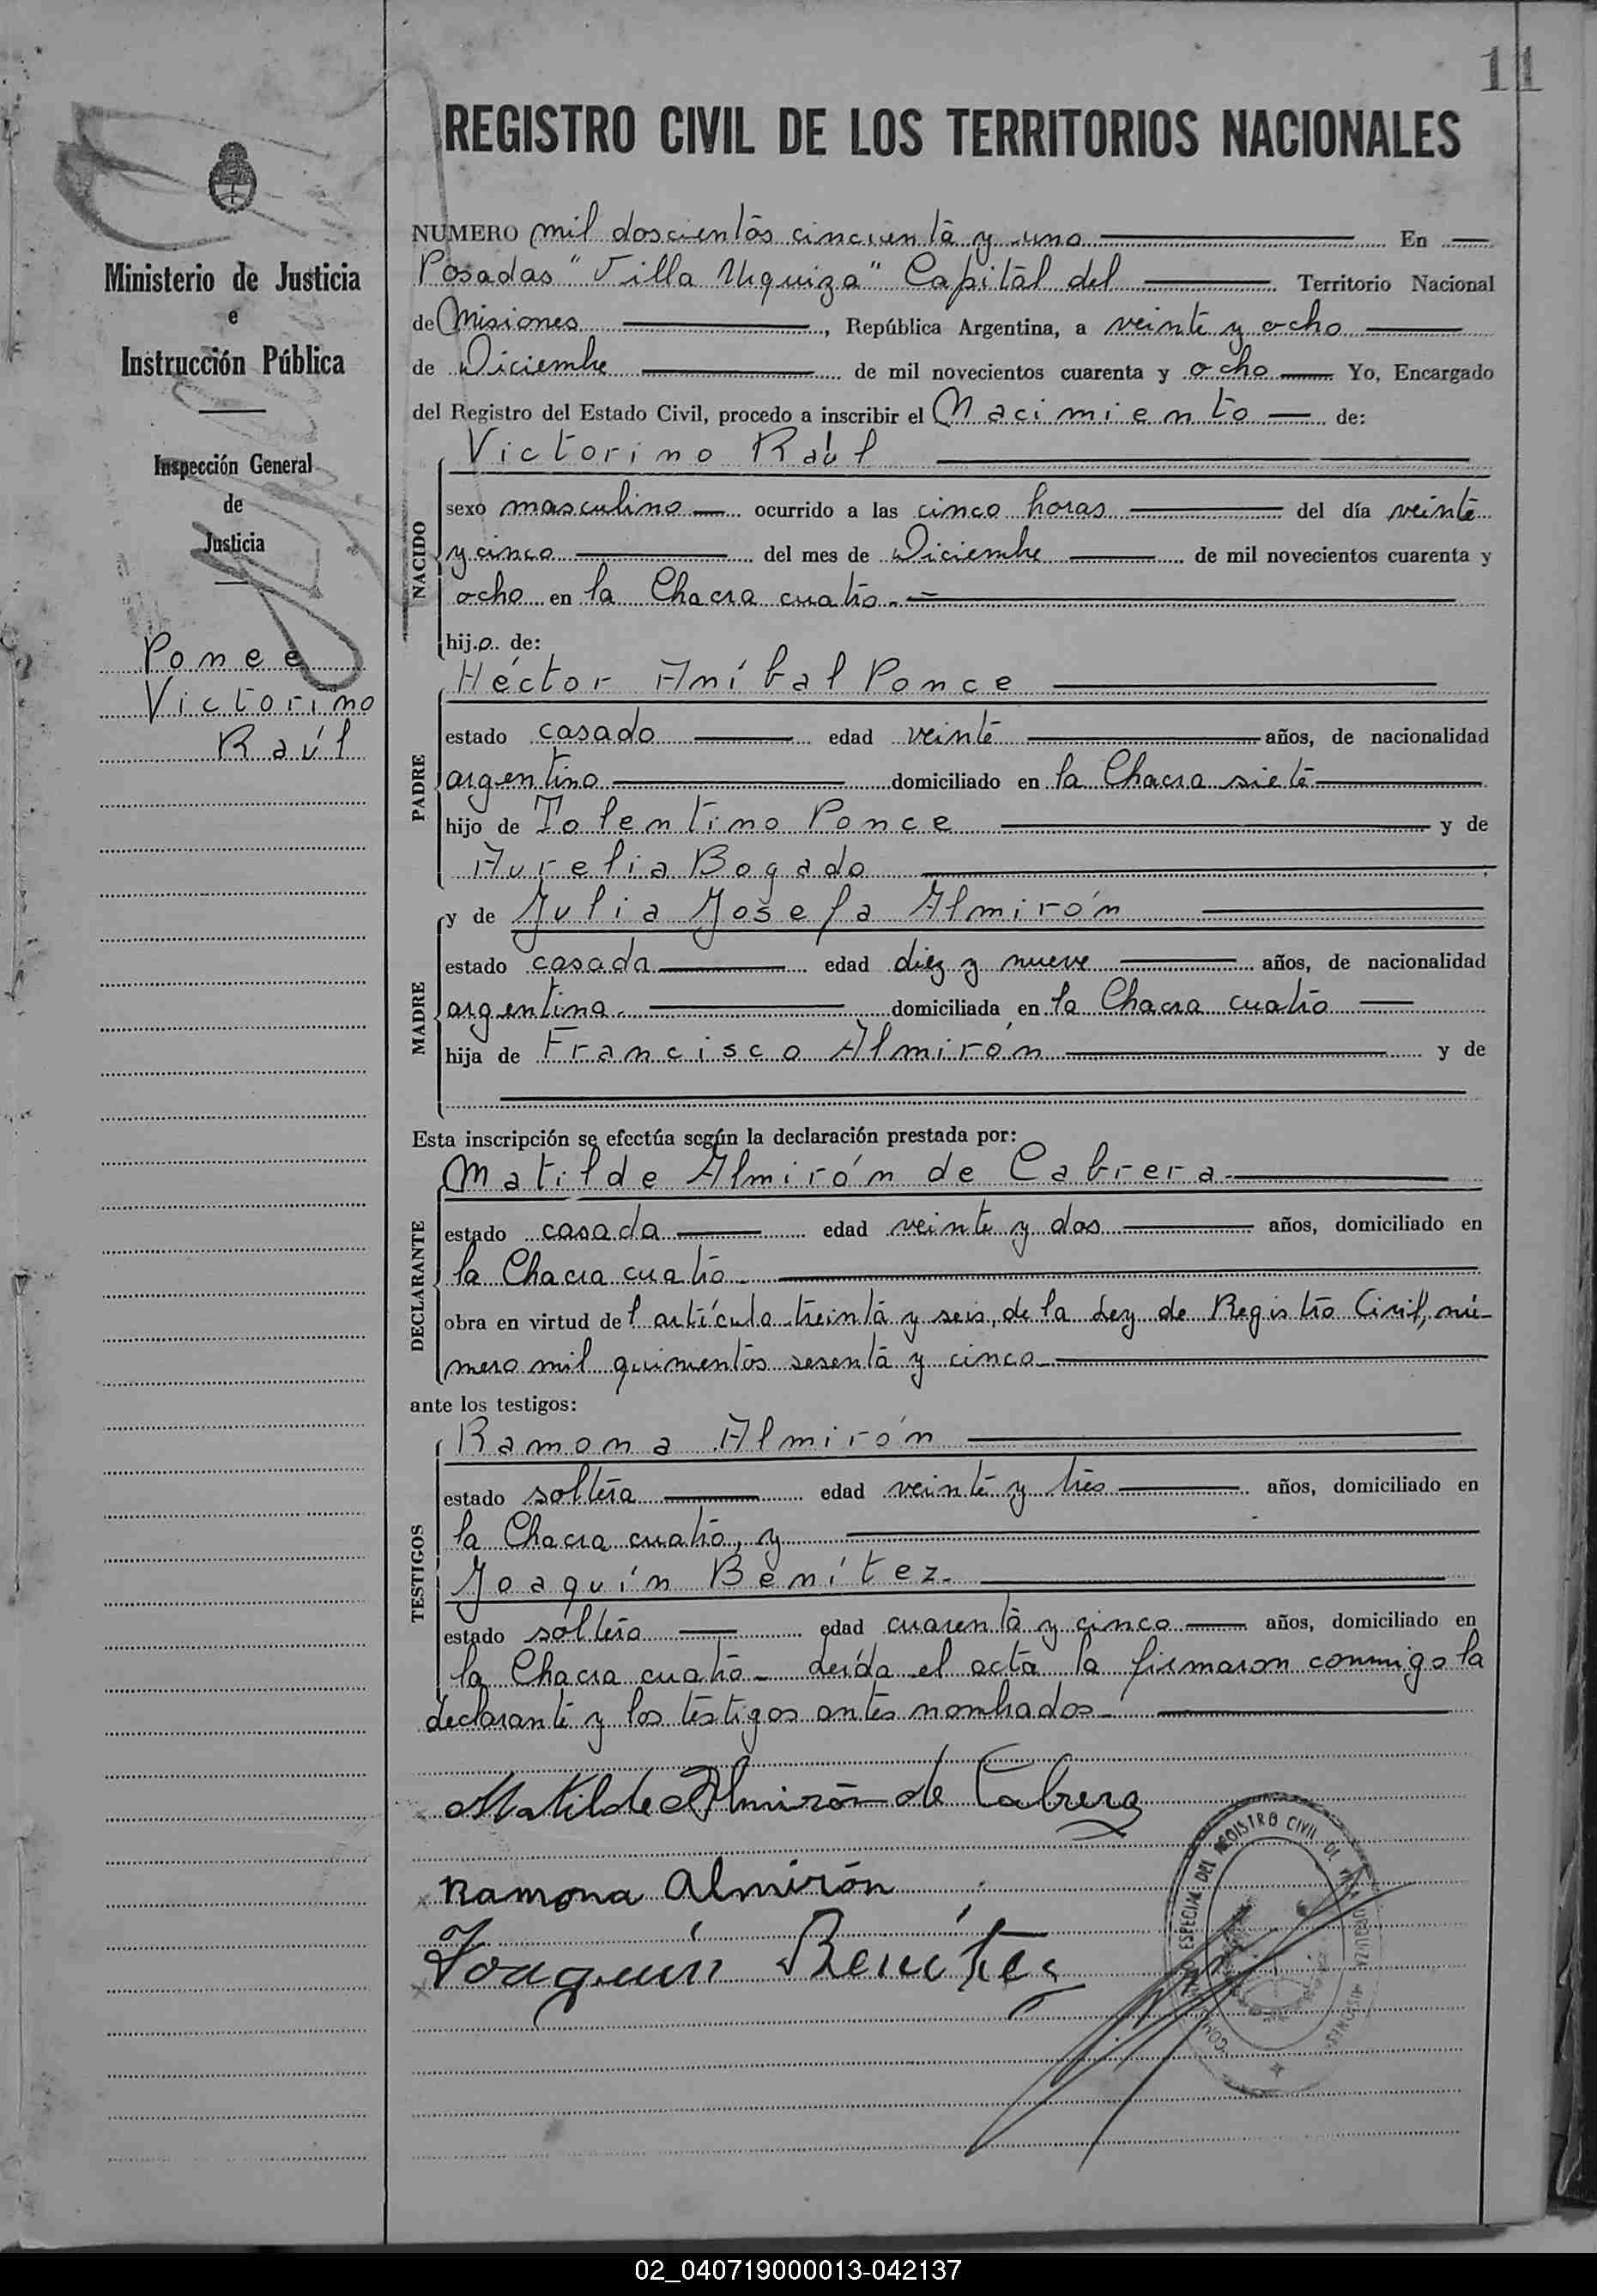 11
REGISTRO CIVIL DE LOS TERRITORIOS NACIONALES
Ministerio de Justicia
e
Instrucción Pública
Inspección General
de
Justicia
Ponce
Victorino
Raúl
NUMERO mil doscientos cincuenta y uno En
Posadas "Villa Urquiza" Capital del Territorio Nacional
de Misiones, República Argentina, a veinte y ocho
de Diciembre de mil novecientos cuarenta y ocho Yo, Encargado
del Registro del Estado Civil, procedo a inscribir el Nacimiento de:
NACIDO
Victorino Raúl
sexo masculino ocurrido a las cinco horas del día veinte
y cinco del mes de Diciembre de mil novecientos cuarenta y
ocho en la Chacra cuatro.
hijo de:
PADRE
Héctor Aníbal Ponce
estado casado edad veinte años, de nacionalidad
argentino domiciliado en la Chacra siete
hijo de Tolentino Ponce y de
Aurelia Bogado
MADRE
y de Julia Josefa Almirón
estado casada edad diez y nueve años, de nacionalidad
argentina. domiciliada en la Chacra cuatro
hija de Francisco Almirón y de
Esta inscripción se efectúa según la declaración prestada por:
DECLARANTE
Matilde Almirón de Cabrera.
estado casada edad veinte y dos años, domiciliado en
la Chacra cuatro.
obra en virtud del artículo treinta y seis, de la Ley de Registro Civil, nú-
mero mil quinientos sesenta y cinco.
ante los testigos:
TESTIGOS
Ramona Almirón
estado soltera edad veinte y tres años, domiciliado en
la Chacra cuatro, y
Joaquín Benítez.
estado soltero edad cuarenta y cinco años, domiciliado en
la Chacra cuatro. Leída el acta la firmaron conmigo la
declarante y los testigos antes nombrados.
Matilde Almirón de Cabrera
Ramona Almirón
Joaquín Benítez
ESPECIAL DEL REGISTRO CIVIL DE VILLA URQUIZA MISIONES
02_040719000013-042137